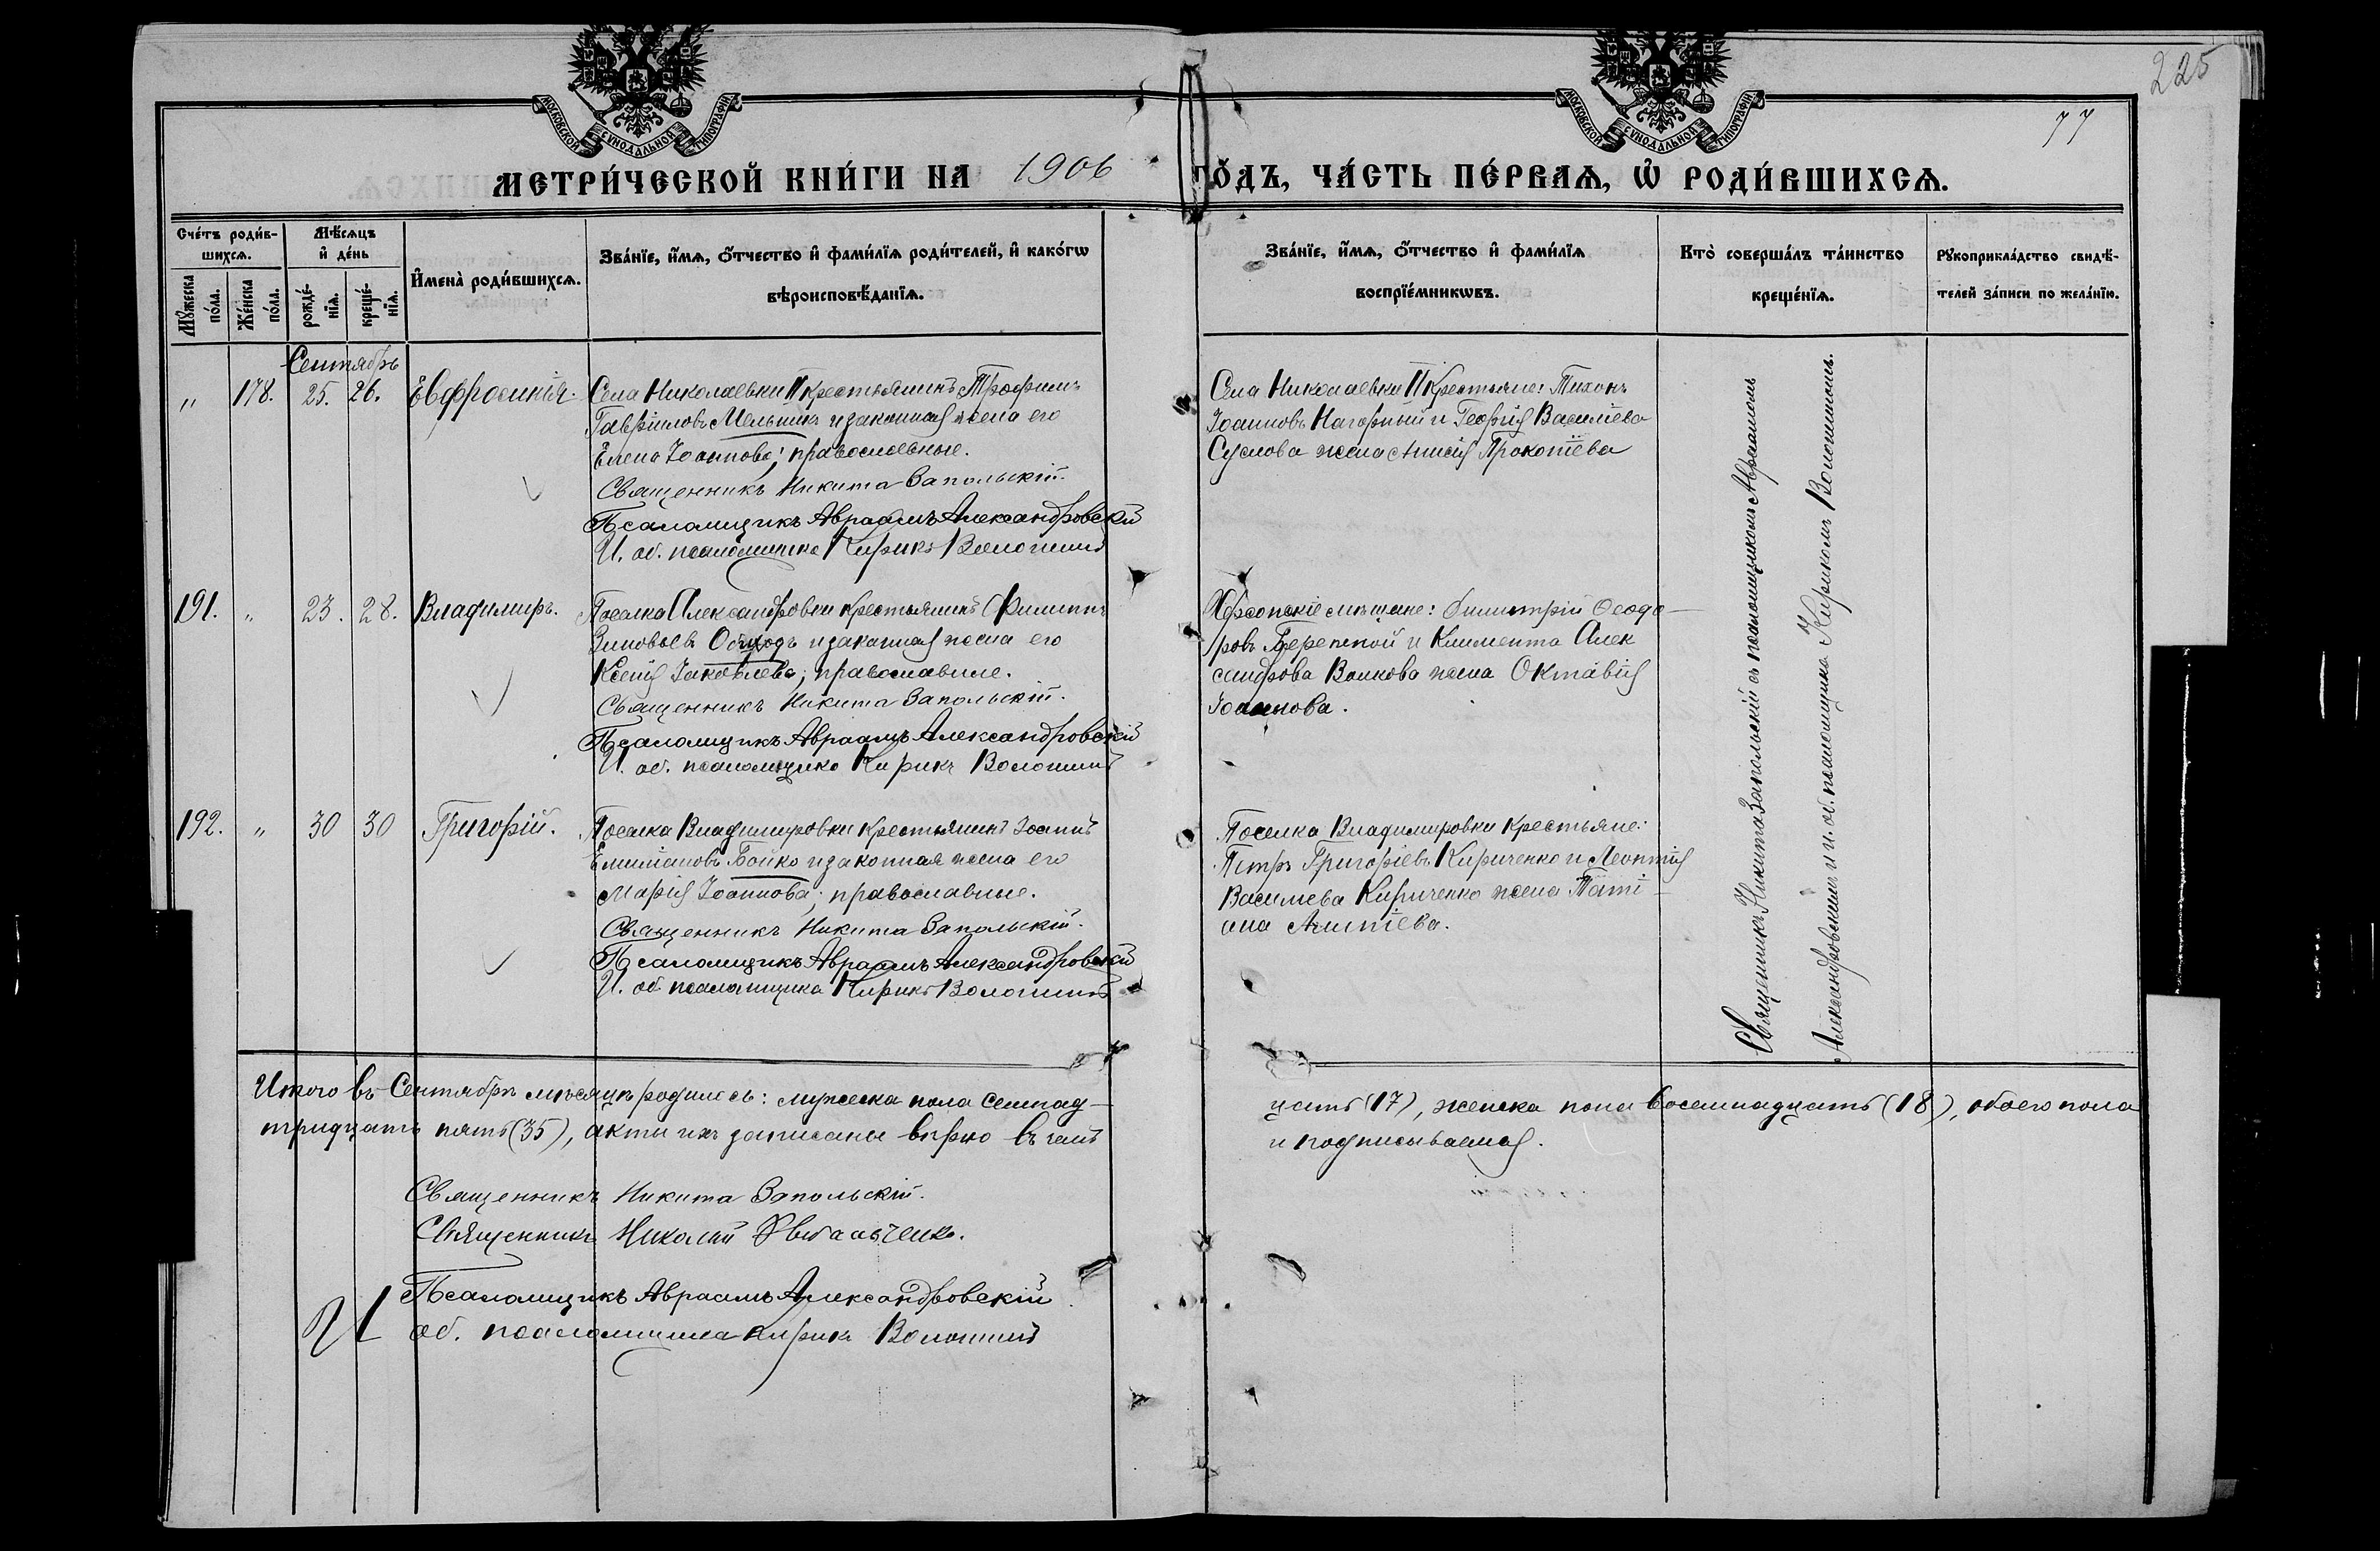 225
77
МОСКОВСКОЙ СѴНОДАЛЬНОЙ ТИПОГРАФІИ.
МОСКОВСКОЙ СѴНОДАЛЬНОЙ ТИПОГРАФІИ.
МЕТРИ́ЧЕСКОЙ КНИ́ГИ НА 1906 ГО́ДЪ, ЧА́СТЬ ПЕ́РВАѦ, Ѽ РОДИ́ВШИХСѦ.
Сче́тъ роди́в-
шихсѧ.
Мꙋ́жеска по́ла.
Же́нска по́ла.
Мѣ́сѧцъ
и҆ де́нь
рожде́-
нїѧ.
креще́-
нїѧ.
И҆мена̀ роди́вшихсѧ.
Зва́нїе, и҆́мѧ, ѻ҆́тчество и҆ фами́лїѧ роди́телей, и҆ како́гѡ
вѣроисповѣ́данїѧ.
Зва́нїе, и҆́мѧ, ѻ҆́тчество и҆ фами́лїѧ
воспрїе́мникѡвъ.
Кто̀ соверша́лъ та́инство
креще́нїѧ.
Рꙋкоприкла́дство свидѣ́-
телей за́писи по жела́нїю.
Сентябрь
" 178. 25. 26. Евфросинія.
Села Николаевки II крестьянинъ Трофимъ
Гавріиловъ Мельникъ и законная жена его
Елена Іоаннова; православные.
Священникъ Никита Запольскій.
Псаломщикъ Авраамъ Александровскій
И. об. псаломщика Кирикъ Волошинъ
Села Николаевки II крестьяне: Тихонъ
Іоанновъ Нагорный и Георгія Василіева
Суслова жена Анисія Прокопіева
191. " 23. 28. Владимиръ.
Поселка Александровки крестьянинъ Филиппъ
Зиновьевъ и законная жена его
Ксенія Іаковлева; православные.
Священникъ Никита Запольскій.
Псаломщикъ Авраамъ Александровскій
И. об. псаломщика Кирикъ Волошинъ
Херсонскіе мѣщане: Димитрій Ѳеодо-
ровъ и Климента Алек
сандрова Волкова жена Октавія
Іоаннова.
192. " 30 30 Григорій.
Поселка Владимировки крестьянинъ Іоаннъ
Емиліановъ Бойко и законная жена его
Марія Іоаннова; православные.
Священникъ Никита Запольскій.
Псаломщикъ Авраамъ Александровскій
И. об. псаломщика Кирикъ Волошинъ
Поселка Владимировки крестьяне:
Петръ Григоріевъ Кириченко и Леонтія
Васильева Кириченко жена Таті-
ана
Священникъ Никита Запольскій съ псаломщикомъ Авраамомъ
Александровскимъ и и. об. псаломщика Кирикомъ Волошинымъ.
Итого въ Сентябрѣ мѣсяцѣ родилось: мужеска пола семнад-
цать (17), женска пола восемнадцать (18), обоего пола
тридцать пять (35), акты ихъ записаны вѣрно въ чемъ
и подписываемся.
Священникъ Никита Запольскій.
Священникъ Николай
Псаломщикъ Авраамъ Александровскій
И об. псаломщика Кирикъ Волошинъ